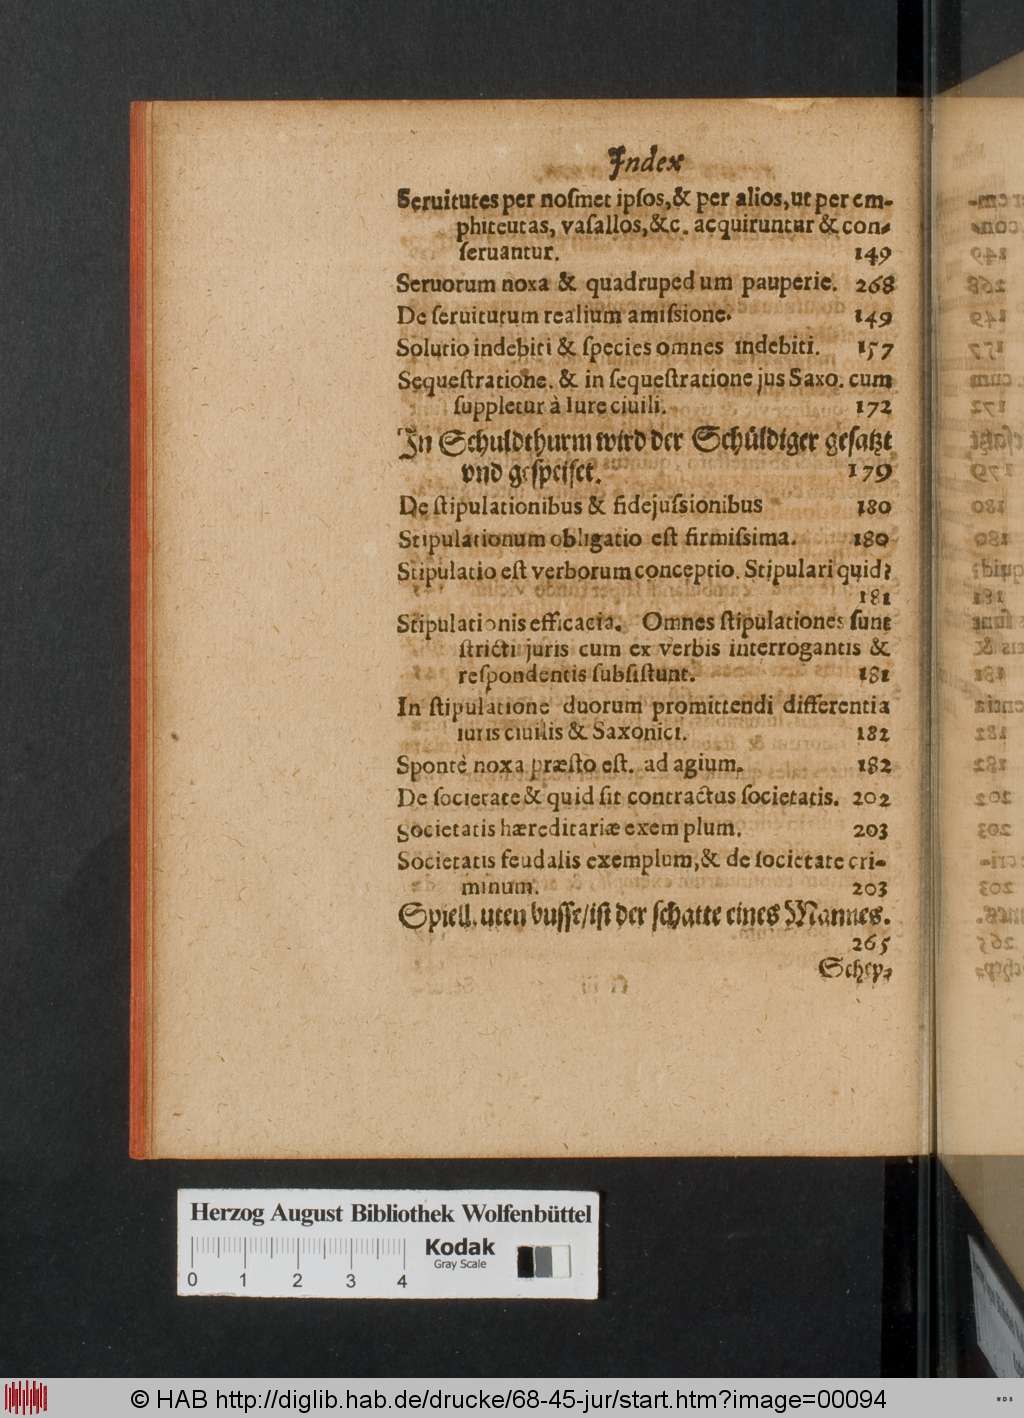 Index
Seruitutes per noſmet ipſos, & per alios, ut per em-
phiteutas, vaſallos, &c. acquiruntur & con-
ſeruantur. 149
Seruorum noxa & quadruped um pauperie. 268
De ſeruitutum realium amiſsione. 149
Solutio indebiti & ſpecies omnes indebiti. 157
Sequeſtratione. & in ſequeſtratione jus Saxo. cum
suppletur à Iure ciuili. 172
In Schuldthurm wird der Schüldiger geſatzt
vnd geſpeiſet. 179
De ſtipulationibus & fidejuſsionibus 180
Stipulationum obligatio eſt firmiſsima. 180
Stipulatio eſt verborum conceptio. Stipulari quid?
181
Stipulationis efficacia. Omnes ſtipulationes ſunt
ſtricti juris cum ex verbis interrogantis &
reſpondentis ſubſiſtunt. 181
In ſtipulatione duorum promittendi differentia
iuris ciuilis & Saxonici. 182
Spontè noxa præſto eſt. ad agium. 182
De ſocietate & quid ſit contractus ſocietatis. 202
Societatis hæreditariæ exemplum. 203
Societatis feudalis exemplum, & de ſocietate cri-
minum. 203
Spiell.uten buſſe/iſt der ſchatte eines Mannes.
265
Schep-
Herzog August Bibliothek Wolfenbüttel
Kodak
Gray Scale
0 1 2 3 4
© HAB http://diglib.hab.de/drucke/68-45-jur/start.htm?image=00094